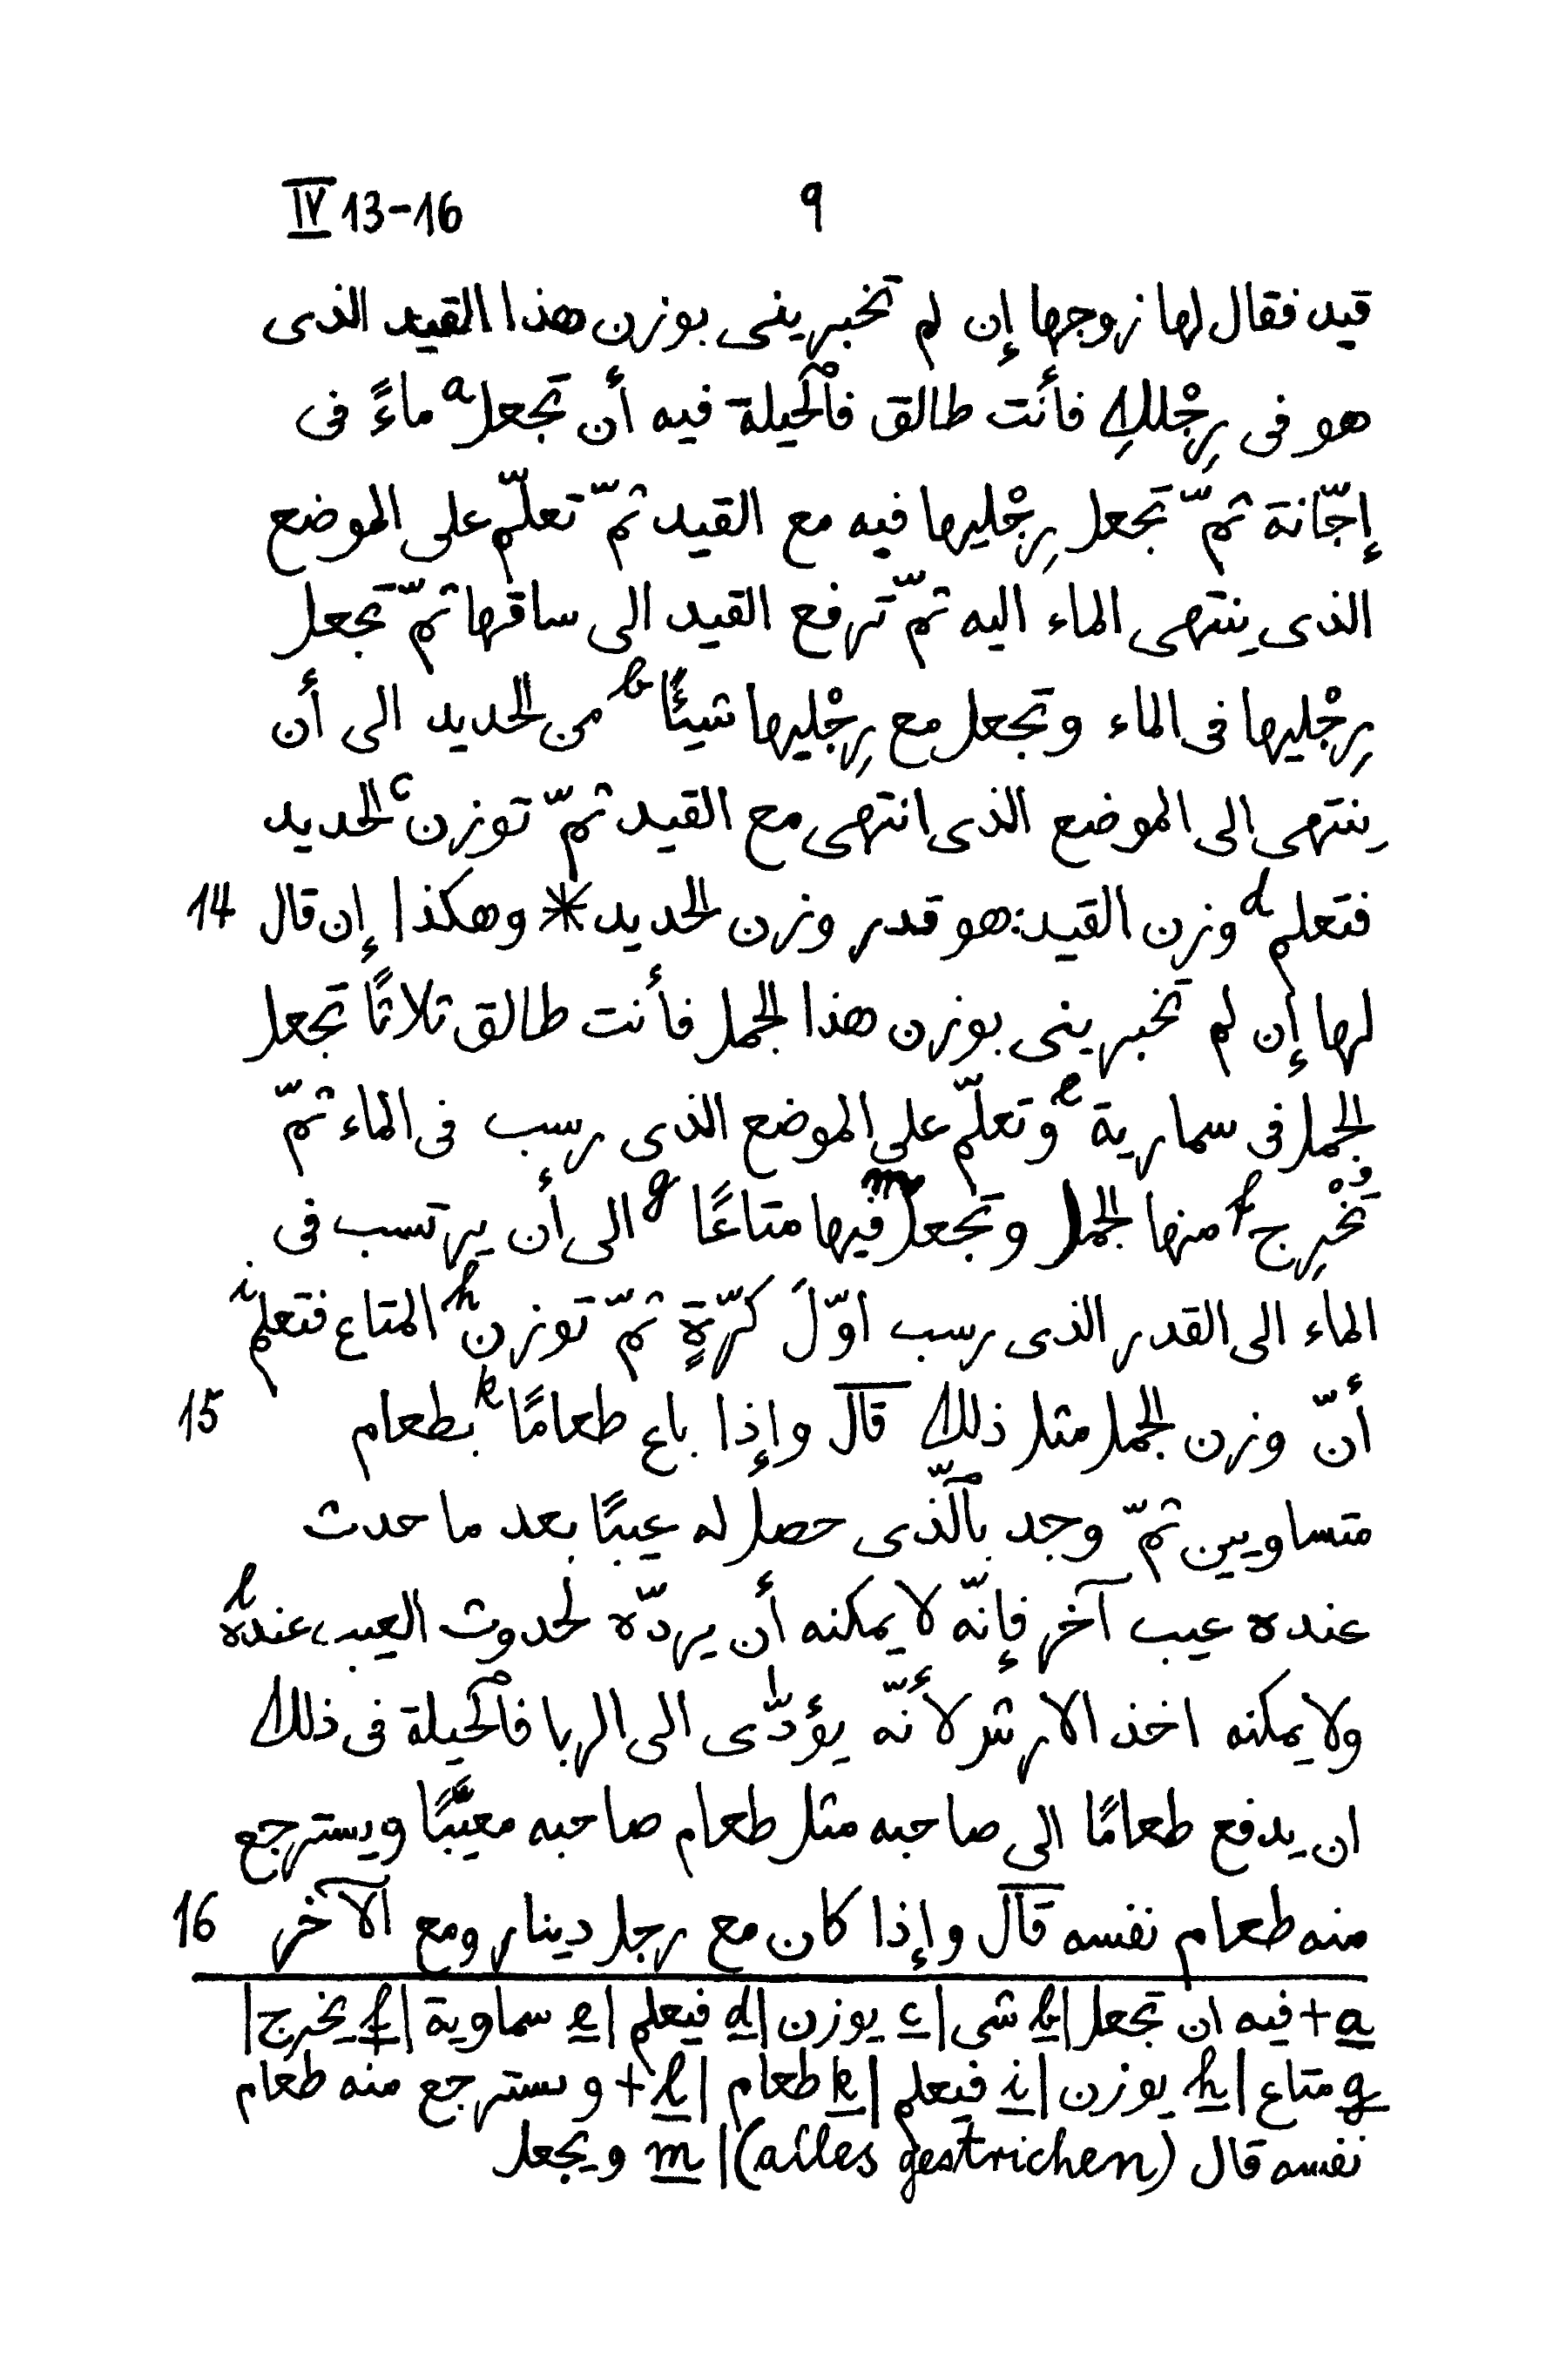 IV 13-16 ٩
قيد فقال لها زوجها إن لم تخبرينى بوزن هذا القيد الذى
هو فى رِجْلكِ فأنت طالق فٱلحيلة فيه أن تجعل a ماءً فى
إجّانة ثمّ تجعل رِجْليها فيه مع القيد ثمّ تعلّم على الموضع
الذى ينتهى الماء اليه ثمّ ترفع القيد الى ساقها ثمّ تجعل
رِجْليها فى الماء وتجعل مع رِجْليها شيئًا b من الحديد الى أن
ينتهى الى الموضع الذى انتهى مع القيد ثمّ توزن c الحديد
فتعلم d وزن القيد: هو قدر وزن الحديد * وهكذا إن قال 14
لها إن لم تخبرينى بوزن هذا الجمل فأنت طالق ثلاثًا تجعل
الجمل فى سمارية e وتعلّم على الموضع الذى رسب فى الماء ثمّ
تُخْرِج f منها الجمل وتجعل m فيها متاعًا g الى أن يرتسب فى
الماء الى القدر الذى رسب اوّلَ كرّةٍ ثمّ توزن h المتاع فتعلم i
أنّ وزن الجمل مثل ذلك قال وإذا باع طعامًا k بطعام 15
متساويين ثمّ وجد بٱلّذى حصل له عيبًا بعد ما حدث
عنده عيب آخر فإنّه لا يمكنه أن يردّه لحدوث العيب عنده l
ولا يمكنه اخذ الارش لأنّه يؤدّى الى الربا فٱلحيلة فى ذلك
ان يدفع طعامًا الى صاحبه مثل طعام صاحبه معيّبًا ويسترجع
منه طعام نفسه قال وإذا كان مع رجل دينار ومع الآخر 16
a + فيه ان تجعل | b شى | c يوزن | d فيعلم | e سماوية | f يخرج |
g متاع | h يوزن | i فيعلم | k طعام | l + ويسترجع منه طعام
نفسه قال (alles gestrichen) | m ويجعل